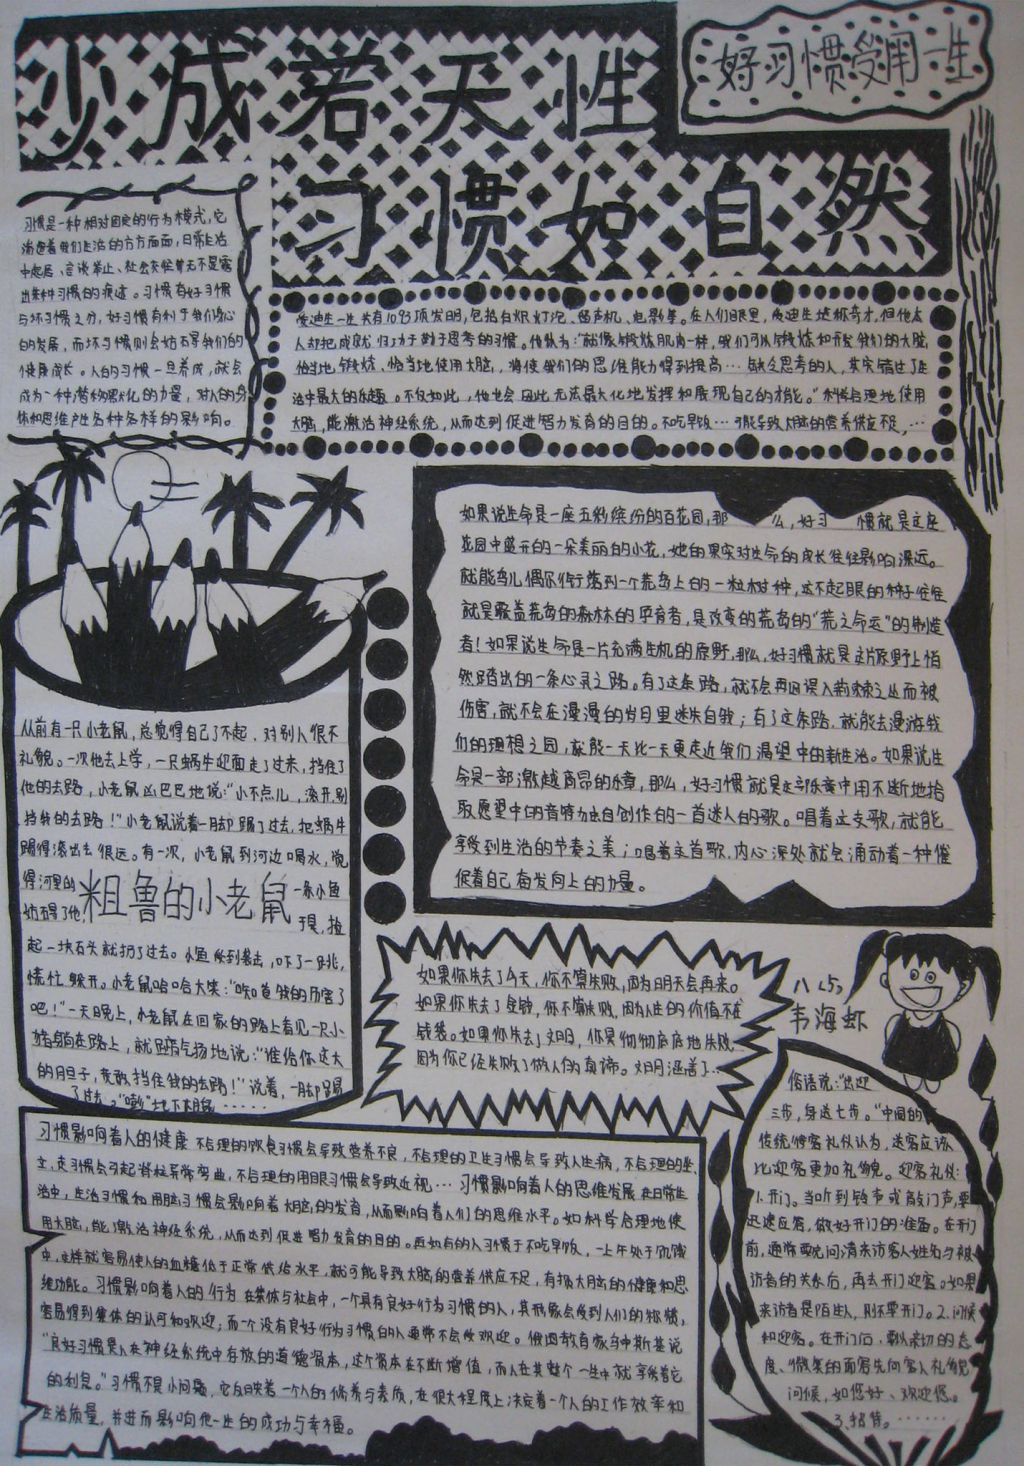 少成若天性
好习惯受用一生
习惯如自然
习惯是一种相对固定的行为模式,它
渗透着我们生活的方方面面,日常生活
中起居、言谈举止、社会交往等无不是露
出某种习惯的痕迹。习惯有好习惯
与坏习惯之分,好习惯有利于我们身心
的发展,而坏习惯则会妨碍我们的
健康成长。人的习惯一旦养成,就会
成为一种潜移默化的力量,对人的身
体和思维产生各种各样的影响。
爱迪生一生共有1093项发明,包括白炽灯泡、留声机、电影等。在人们眼里,爱迪生堪称奇才,但他本
人却把成就归功于勤于思考的习惯。他认为:“就像锻炼肌肉一样,我们可以锻炼和开发我们的大脑,
恰当地锻炼、恰当地使用大脑,将使我们的思维能力得到提高…缺乏思考的人,其实错过了生
活中最大的乐趣。不仅如此,他也会因此无法最大化地发挥和展现自己的才能。”科学合理地使用
大脑,能激活神经系统,从而达到促进智力发育的目的。不吃早饭…引能导致大脑的营养供应不足,…
如果说生命是一座五彩缤纷的百花园,那么,好习惯就是这座
花园中盛开的一朵美丽的小花,她的果实对生命的成长往往影响深远。
就能鸟儿偶尔衔落到一个荒岛上的一粒树种,这不起眼的种子往往
就是覆盖荒岛的森林的孕育者,是改变的荒岛的“荒之命运”的制造
者!如果说生命是一片充满生机的原野,那么,好习惯就是这片原野上悄
然踏出的一条心灵之路。有了这条路,就不会再因误入荆棘之丛而被
伤害,就不会在漫漫的岁月里迷失自我;有了这条路,就能去漫游我
们的理想之园,就能一天比一天更走近我们渴望中的新生活。如果说生
命是一部激越高昂的乐章,那么,好习惯就是这部乐章中用不断地拾
取愿望中的音符为自创作的一首迷人的歌。唱着这支歌,就能
享受到生活的节奏之美;唱着这首歌,内心深处就会涌动着一种催
促着自己奋发向上的力量。
从前有一只小老鼠,总觉得自己了不起,对别人很不
礼貌。一次他去上学,一只蜗牛迎面走了过来,挡住了
他的去路,小老鼠凶巴巴地说:“小不点儿,滚开,别
挡我的去路!”小老鼠说着一脚踢了过去,把蜗牛
踢得滚出去很远。有一次,小老鼠到河边喝水,觉
得河里的一条小鱼
妨碍了他,于是,捡
粗鲁的小老鼠
起一块石头就扔了过去。小鱼受到袭击,吓了一跳,
慌忙躲开。小老鼠哈哈大笑:“知道我的厉害了
吧!”一天晚上,小老鼠在回家的路上看见一只小
猪躺在路上,就趾高气扬地说:“谁给你这大
的胆子,竟敢挡住我的去路!”说着,一脚踢
了过去。“嘭”地下……
如果你失去了今天,你不算失败,因为明天会再来。
如果你失去了金钱,你不算失败,因为人生的价值不在
钱袋。如果你失去了文明,你是彻彻底底地失败,
因为你已经失败了做人的真谛。文明涵盖了…
八(5)
韦海虾
俗话说:“出迎
三步,身送七步。”中国的
传统待客礼仪认为,送客应该
比迎客更加礼貌。迎客礼仪:
1.开门。当听到铃声或敲门声,要
迅速应答,做好开门的准备。在开门
前,通常要先问清来访客人姓名与被
访者的关系后,再去开门迎客。如果
来访者是陌生人,则不要开门。2.问候
和迎客。在开门后,要以亲切的态
度、微笑的面容先向客人礼貌
问候,如您好、欢迎您。
3.招待。……
习惯影响着人的健康 不合理的饮食习惯会导致营养不良,不合理的卫生习惯会导致人生病,不合理的坐、
立、走习惯会引起脊柱异常弯曲,不合理的用眼习惯会导致近视…习惯影响着人的思维发展,在日常生
活中,生活习惯和用脑习惯会影响着大脑的发育,从而影响着人们的思维水平。如科学合理地使
用大脑,能激活神经系统,从而达到促进智力发育的目的。再如有的人习惯于不吃早饭,一上午处于饥饿
中,这样就容易使人的血糖低于正常供给水平,就可能导致大脑的营养供应不足,有损大脑的健康和思
维功能。习惯影响着人的行为 在集体与社会中,一个具有良好行为习惯的人,其形象会受到人们的称赞,
容易得到集体的认可和欢迎;而一个没有良好行为习惯的人通常不会受欢迎。俄国教育家乌申斯基说
“良好习惯是人在神经系统中存放的道德资本,这个资本在不断增值,而人在其整个一生中就享受着它
的利息。”习惯不是小问题,它反映着一个人的修养与素质,在很大程度上决定着一个人的工作效率和
生活质量,并进而影响他一生的成功与幸福。